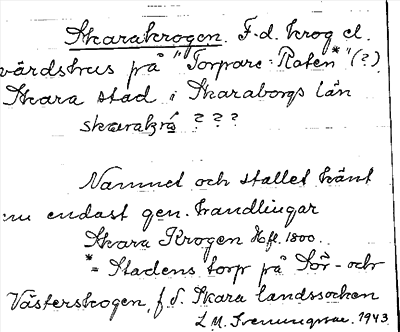 Skarakrogen. F.d. krog el.
värdshus på "Torpare-Roten*" (?)
Skara stad i Skaraborgs län
skarakrå ? ? ?
Namnet och stället känt
nu endast gen. handlingar
Skara Krogen Hfl. 1800.
* = Stadens torp på Sör- och
Västerskogen, f.d. Skara landssocken
L. M. 1943